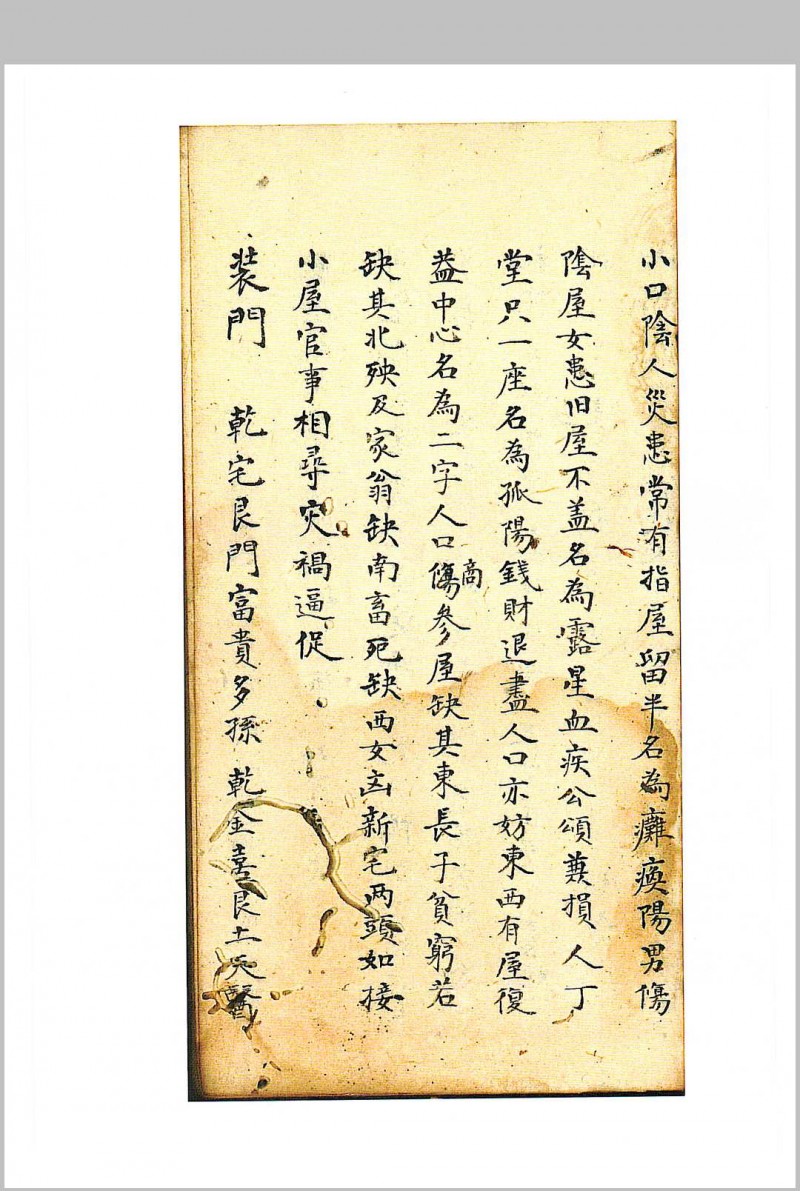 小口陰人災患常有指屋留半名為癱瘓陽男傷
陰屋女患旧屋不盖名為露星血疾公頌兼損人丁
堂只一座名為孤陽錢財退盡人口亦妨東西有屋復
益中心名為二字人口傷商參屋缺其東長子貧窮若
缺其北殃及家翁缺南畜死缺西女凶新宅两頭如接
小屋官事相尋灾禍逼促
装門 乾宅艮門富貴多孫 乾金喜艮土天醫